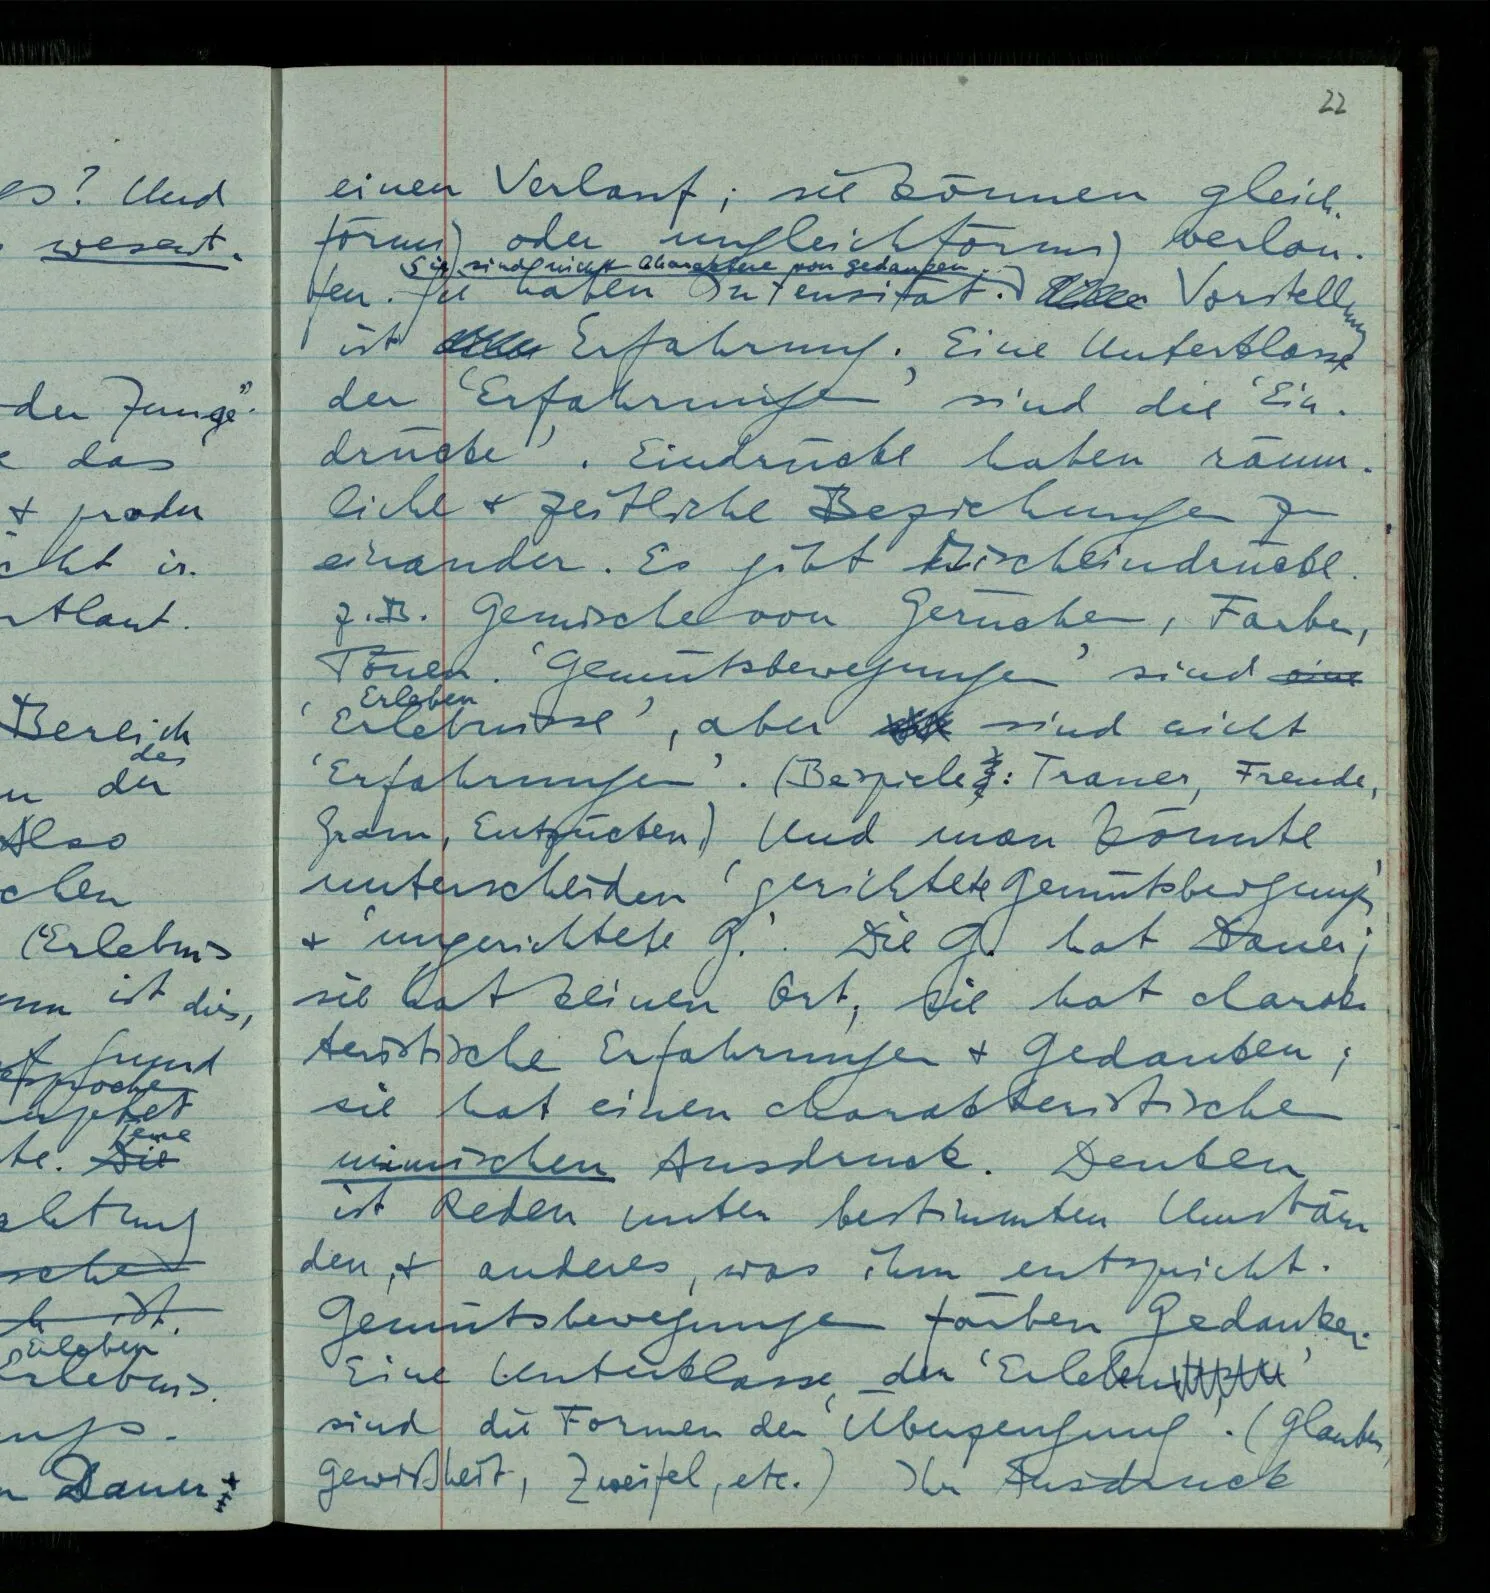 22
es? Und
wesent.
der Junge".
das
& produ
cht in
rtlaut.
Bereich
des
n der
Also
chen
('Erlebnis
ist dies,
Grund
te. Die
Erleben
Erlebnis.
Dauer
einen Verlauf; sie können gleich-
förmig oder ungleichförmig verlau-
Sie sind nicht Charaktere von Gedanken.
fen. Sie haben Intensität.) Vorstellung
ist Erfahrung. Eine Unterklasse
der 'Erfahrungen' sind die 'Ein-
drücke'. Eindrücke haben räum-
liche & zeitliche Beziehungen zu
einander. Es gibt Mischeindrücke.
z.B. Gemische von Gerüchen, Farben,
Tönen. 'Gemütsbewegungen' sind eine
Erleben
'Erlebnisse', aber sind nicht
'Erfahrungen'. (Beispiele: Trauer, Freude,
Gram, Entzücken) Und man könnte
unterscheiden 'gerichtete Gemütsbewegungen'
& 'ungerichtete G.'. Die G. hat Dauer;
sie hat keinen Ort; sie hat charak
teristische Erfahrungen & Gedanken;
sie hat einen charakteristischen
mimischen Ausdruck. Denken
ist Reden unter bestimmten Umstän
den, & anderes, was ihm entspricht.
Gemütsbewegungen färben Gedanken.
Eine Unterklasse der 'Erleben'
sind die Formen der 'Überzeugung'. (Glauben,
Gewißheit, Zweifel, etc.) Ihr Ausdruck